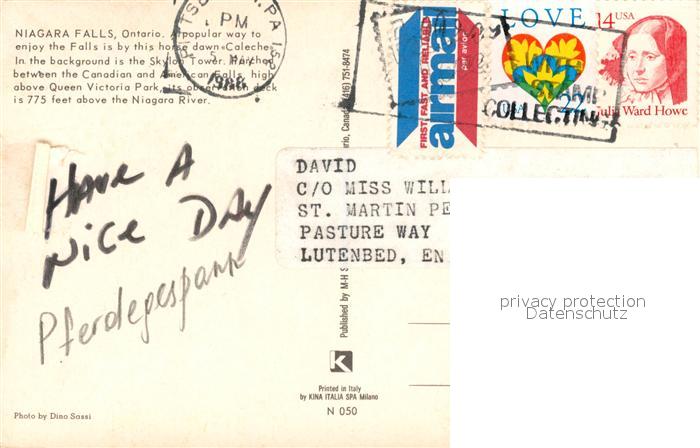 NIAGARA FALLS, Ontario. A popular way to
enjoy the Falls is by this horse dawn Caleche.
In the background is the Skylon Tower. Marches
between the Canadian and American Falls, high
above Queen Victoria Park, its observation deck
is 775 feet above the Niagara River.
PA 152
PM
1988
FIRST, FAST AND RELIABLE
airmail
par avion
LOVE
22
USA
14 USA
Julia Ward Howe
STAMP
COLLECTING
HAVE A
NICE DAY
Pferdegespann
DAVID
C/O MISS WILL
ST. MARTIN PE
PASTURE WAY
LUTENBED, EN
Published by M-H S
ntario, Canada (416) 751-8474
privacy protection
Datenschutz
K
Printed in Italy
by KINA ITALIA SPA Milano
N 050
Photo by Dino Sassi